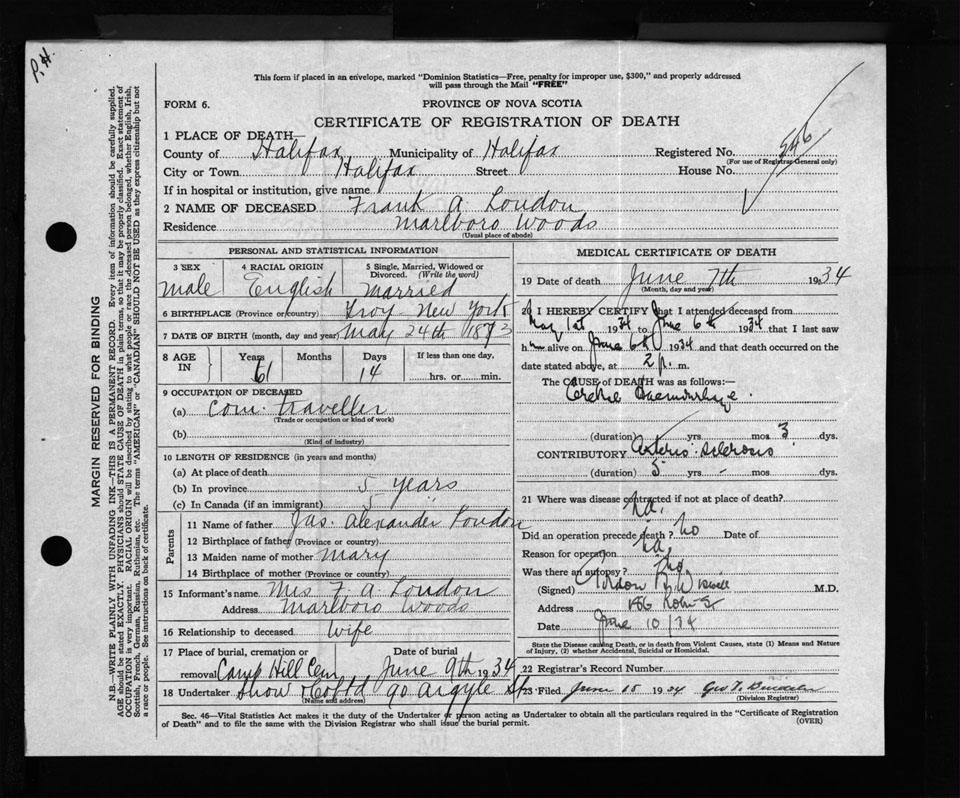 P.H.
This form if placed in an envelope, marked "Dominion Statistics—Free, penalty for improper use, $300," and properly addressed
will pass through the Mail "FREE"
FORM 6.
PROVINCE OF NOVA SCOTIA
CERTIFICATE OF REGISTRATION OF DEATH
1 PLACE OF DEATH—
County of Halifax Municipality of Halifax Registered No. 546
(For use of Registrar General only)
City or Town Halifax Street House No.
If in hospital or institution, give name
2 NAME OF DECEASED Frank A. London
Residence Marlboro Woods
(Usual place of abode)
PERSONAL AND STATISTICAL INFORMATION
3 SEX Male
4 RACIAL ORIGIN English
5 Single, Married, Widowed or Divorced. (Write the word) Married
6 BIRTHPLACE (Province or country) Troy New York
7 DATE OF BIRTH (month, day and year) May 24th 1873
8 AGE IN Years 61 Months Days 14 If less than one day, hrs. or min.
9 OCCUPATION OF DECEASED
(a) Com. Traveller
(Trade or occupation or kind of work)
(b)
(Kind of industry)
10 LENGTH OF RESIDENCE (in years and months)
(a) At place of death
(b) In province 5 years
(c) In Canada (if an immigrant) 5 "
Parents
11 Name of father Jas. Alexander London
12 Birthplace of father (Province or country)
13 Maiden name of mother Mary
14 Birthplace of mother (Province or country)
15 Informant's name Mrs F. A. London
Address Marlboro Woods
16 Relationship to deceased Wife
17 Place of burial, cremation or removal Camp Hill Cem Date of burial June 9th 1934
18 Undertaker Snow & Co Ltd 90 Argyle St
(Name and address)
MEDICAL CERTIFICATE OF DEATH
19 Date of death June 7th 1934
(Month, day and year)
20 I HEREBY CERTIFY that I attended deceased from
May 1st 1934 to June 6th 1934 that I last saw
him alive on June 6th 1934 and that death occurred on the
date stated above, at 2 p. m.
The CAUSE of DEATH was as follows:—
Haemorrhage.
(duration) yrs. mos 3 dys.
CONTRIBUTORY Arterio-sclerosis
(duration) 5 yrs. - mos dys.
21 Where was disease contracted if not at place of death?
Did an operation precede death? No Date of
Reason for operation
Was there an autopsy? No
(Signed) M.D.
Address 186
Date June 10/34
State the Disease causing Death, or in death from Violent Causes, state (1) Means and Nature
of Injury, (2) whether Accidental, Suicidal or Homicidal.
22 Registrar's Record Number
23 Filed June 15 1934 Geo
(Division Registrar)
Sec. 46—Vital Statistics Act makes it the duty of the Undertaker or person acting as Undertaker to obtain all the particulars required in the "Certificate of Registration
of Death" and to file the same with the Division Registrar who shall issue the burial permit. (OVER)
MARGIN RESERVED FOR BINDING
N.B.—WRITE PLAINLY WITH UNFADING INK—THIS IS A PERMANENT RECORD. Every item of information should be carefully supplied.
AGE should be stated EXACTLY. PHYSICIANS should STATE CAUSE OF DEATH in plain terms, so that it may be properly classified. Exact statement of
OCCUPATION is very important. RACIAL ORIGIN will be described by stating to what people or race the deceased person belonged, whether English, Irish,
Scottish, French, German, Russian, Ruthenian, etc. The terms "AMERICAN" or "CANADIAN" SHOULD NOT BE USED as they express citizenship but not
a race or people. See instructions on back of certificate.